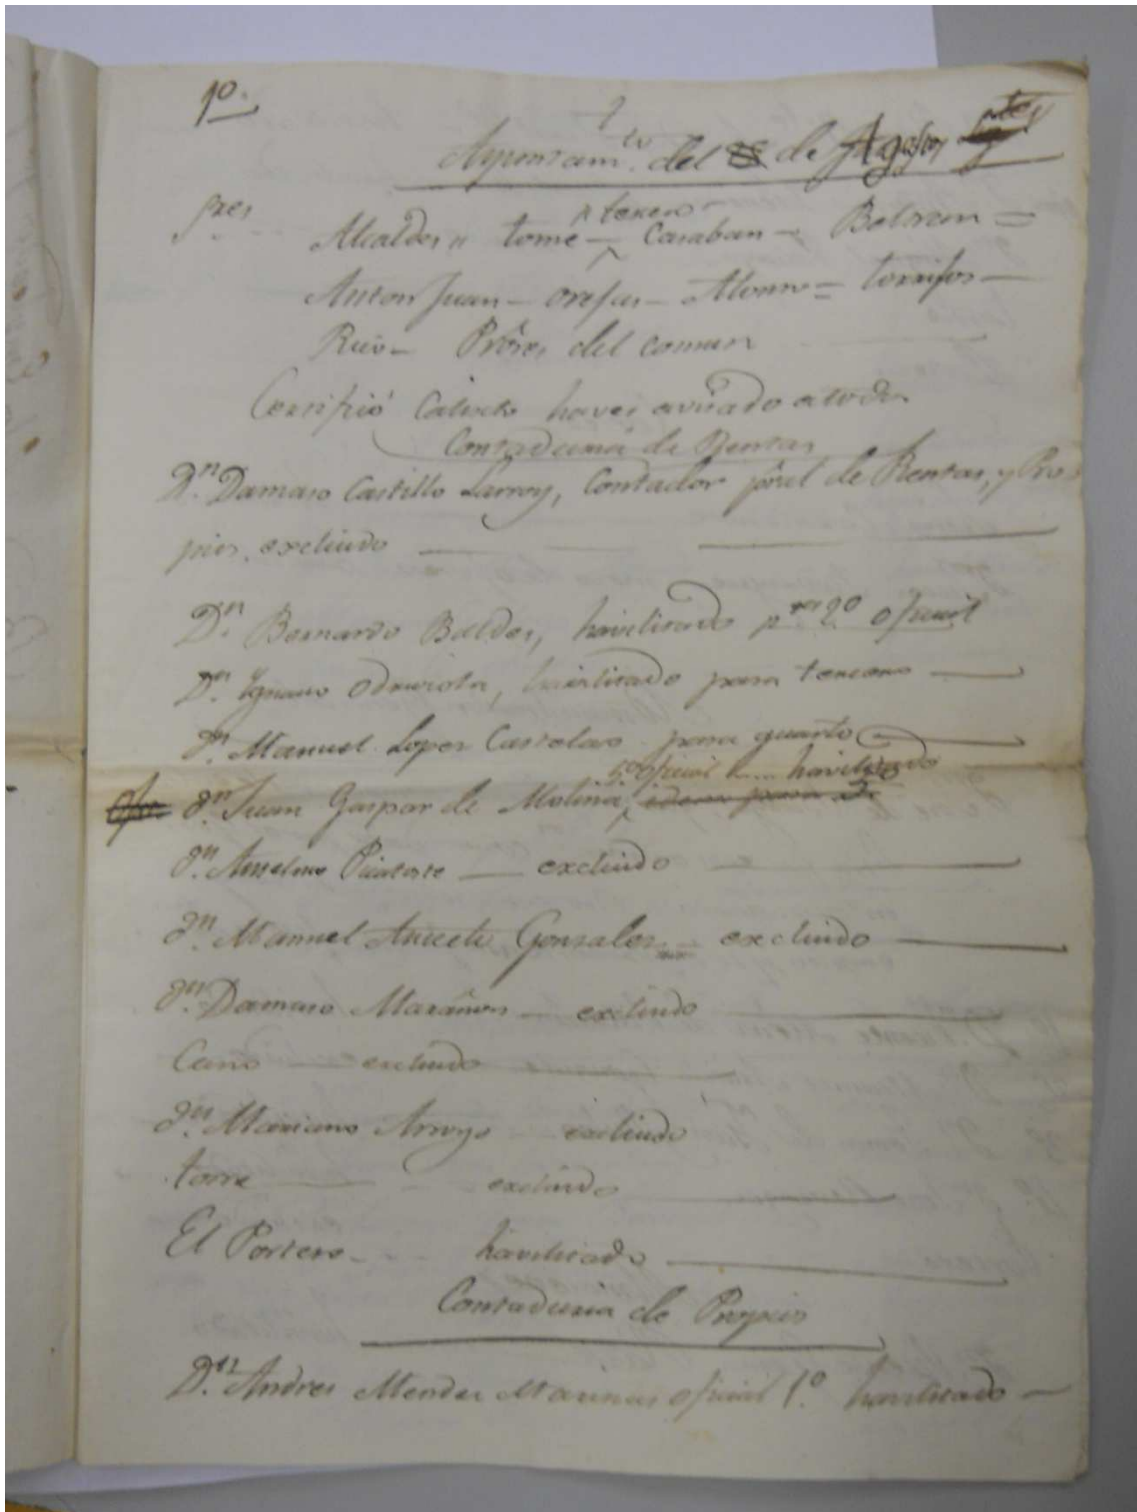 1º.
Ayuntam.to del de Agosto
Sres
Alcaldes tomé — terero — Casaban — Beltran =
Anton Juan — orejas — Alonso = torrijos —
Rico — Prôres del comun
Certifició Calisto haver avisado a todos
Contaduria de Rentas
D.n Damaso Castillo Larroy, Contador jôral de Rentas, y Pro
pios. excluido
D.n Bernardo Baldes, havilitado p.a 2º oficial
D.n Ygnacio Odriozola, havilitado para tercero
d.n Manuel Lopez Castelao para quarto
5º oficial havilitado
d.n Juan Gaspar de Molina, idem para
d.n Anselmo Picatoste — excluido
d.n Manuel Aniceto Gonzalez — excluido
d.n Damaso Marañon — excluido
Cano — excluido
d.n Mariano Arroyo excluido
torre — excluido
El Portero — havilitado
Contaduria de Propios
D.n Andres Mendez Marinas oficial 1.º havilitado —